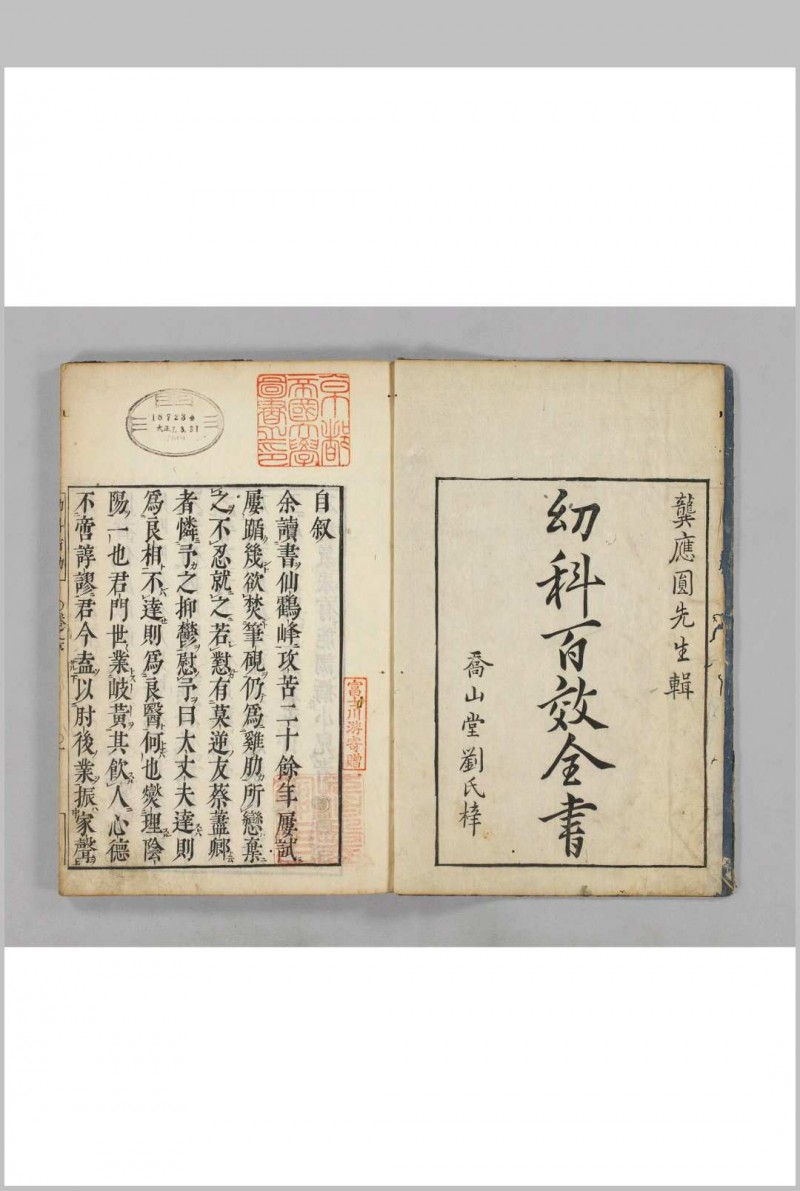 龔應圓先生輯
幼科百效全書
喬山堂劉氏梓
京都
帝國大學
圖書之印
187234
大正7.3.31
富士川游寄贈
自叙
余讀書仙鶴峰攻苦二十餘年屢試
屢躓幾欲焚筆硯仍爲雞肋所戀棄
之不忍就之若懟有莫逆友蔡藎卿
者憐予之抑鬱慰予曰大丈夫達則
爲良相不達則爲良醫何也燮理陰
陽一也君門世業岐黃其飲人心德
不啻諄謬君今盍以肘後業振家聲